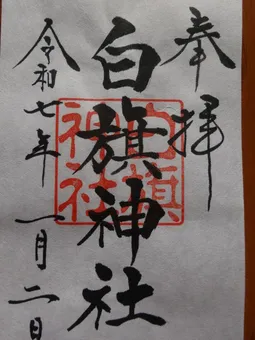 奉拝
白旗神社
白旗神社
令和七年一月二日